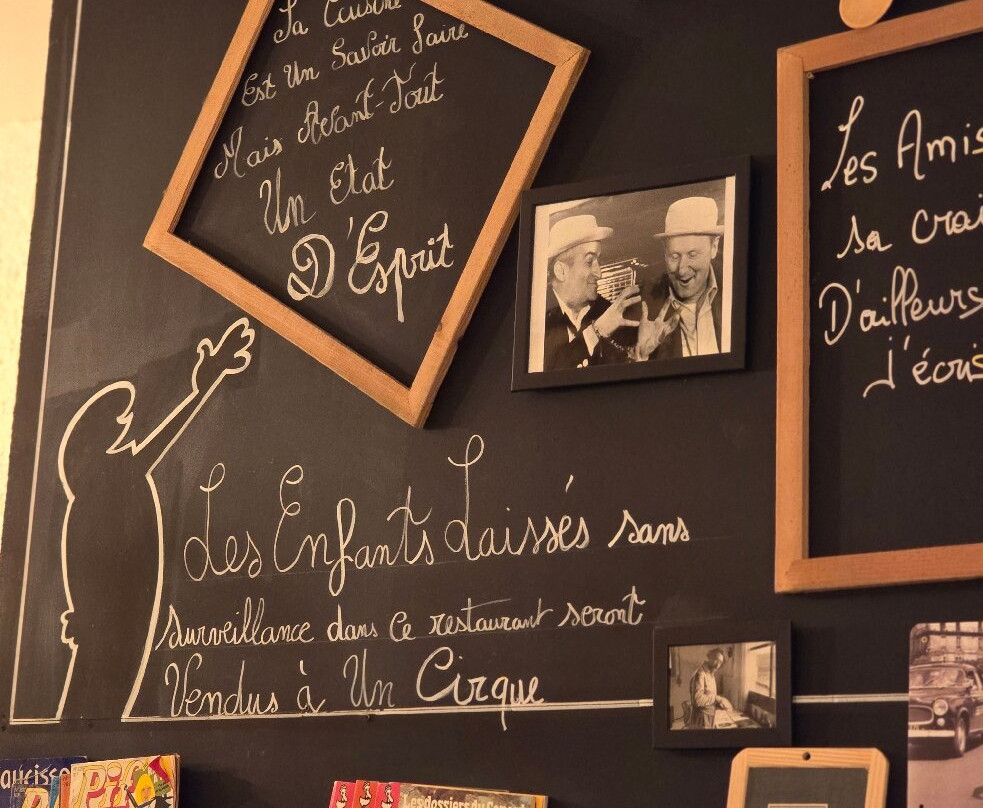 La Cuisine
Est Un Savoir Faire
Mais Avant-Tout
Un Etat
D'Esprit
Les Amis
sa crai
D'ailleurs
j'écris
Les Enfants Laissés sans
surveillance dans ce restaurant seront
Vendus à Un Cirque
Pif
Les dossiers du